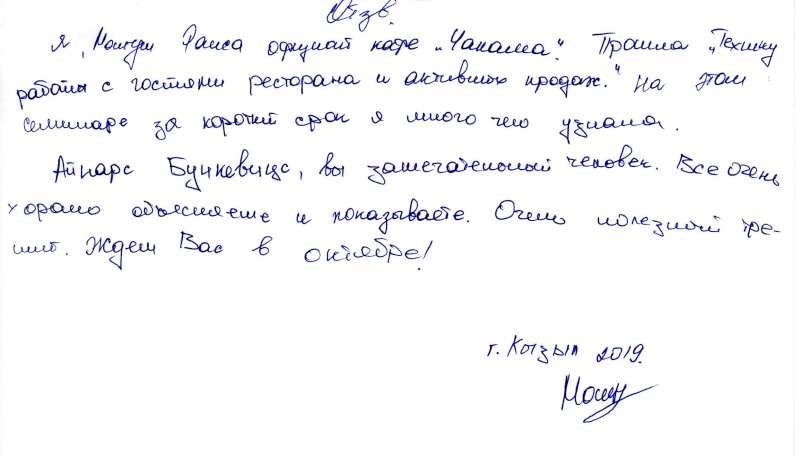 Отзыв.
Я, Монгуш Раиса официант кафе „Чакама". Прошла „Технику
работы с гостями ресторана и активных продаж." На этом
семинаре за короткий срок я много чего узнала.
Айнарс Бучкевицс, вы замечательный человек. Все очень
хорошо объясняете и показываете. Очень полезный тре-
нинг. Ждем Вас в октябре!
г. Кызыл 2019.